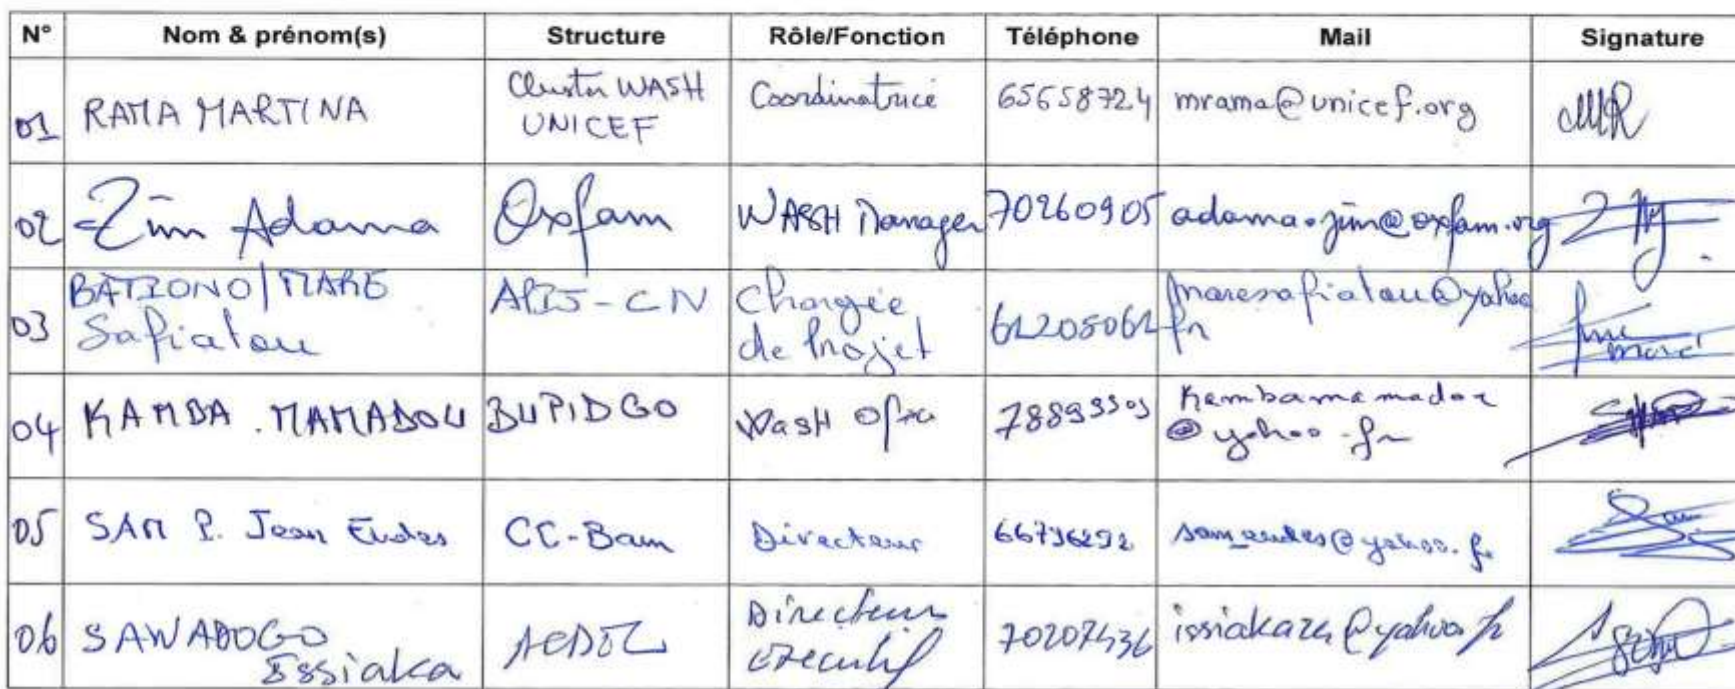 N° Nom & prénom(s) Structure Rôle/Fonction Téléphone Mail Signature
01 RAMA MARTINA Cluster WASH UNICEF Coordinatrice 65658724 mrama@unicef.org MR
02 Zim Adama Oxfam WASH Manager 70260905 adama.zim@oxfam.org
03 BATIONO/MARE Safiatou Chargée de Projet 61205061 maresafiatou@yahoo fr
04 KAMBA MAMADOU BUPIDGO WasH kambamamadou @yahoo.fr
05 SAM P. Jean Eudes CC-Bam Directeur 66736292 sam_eudes@yahoo.fr
06 SAWADOGO Issiaka Directeur Executif @yahoo fr